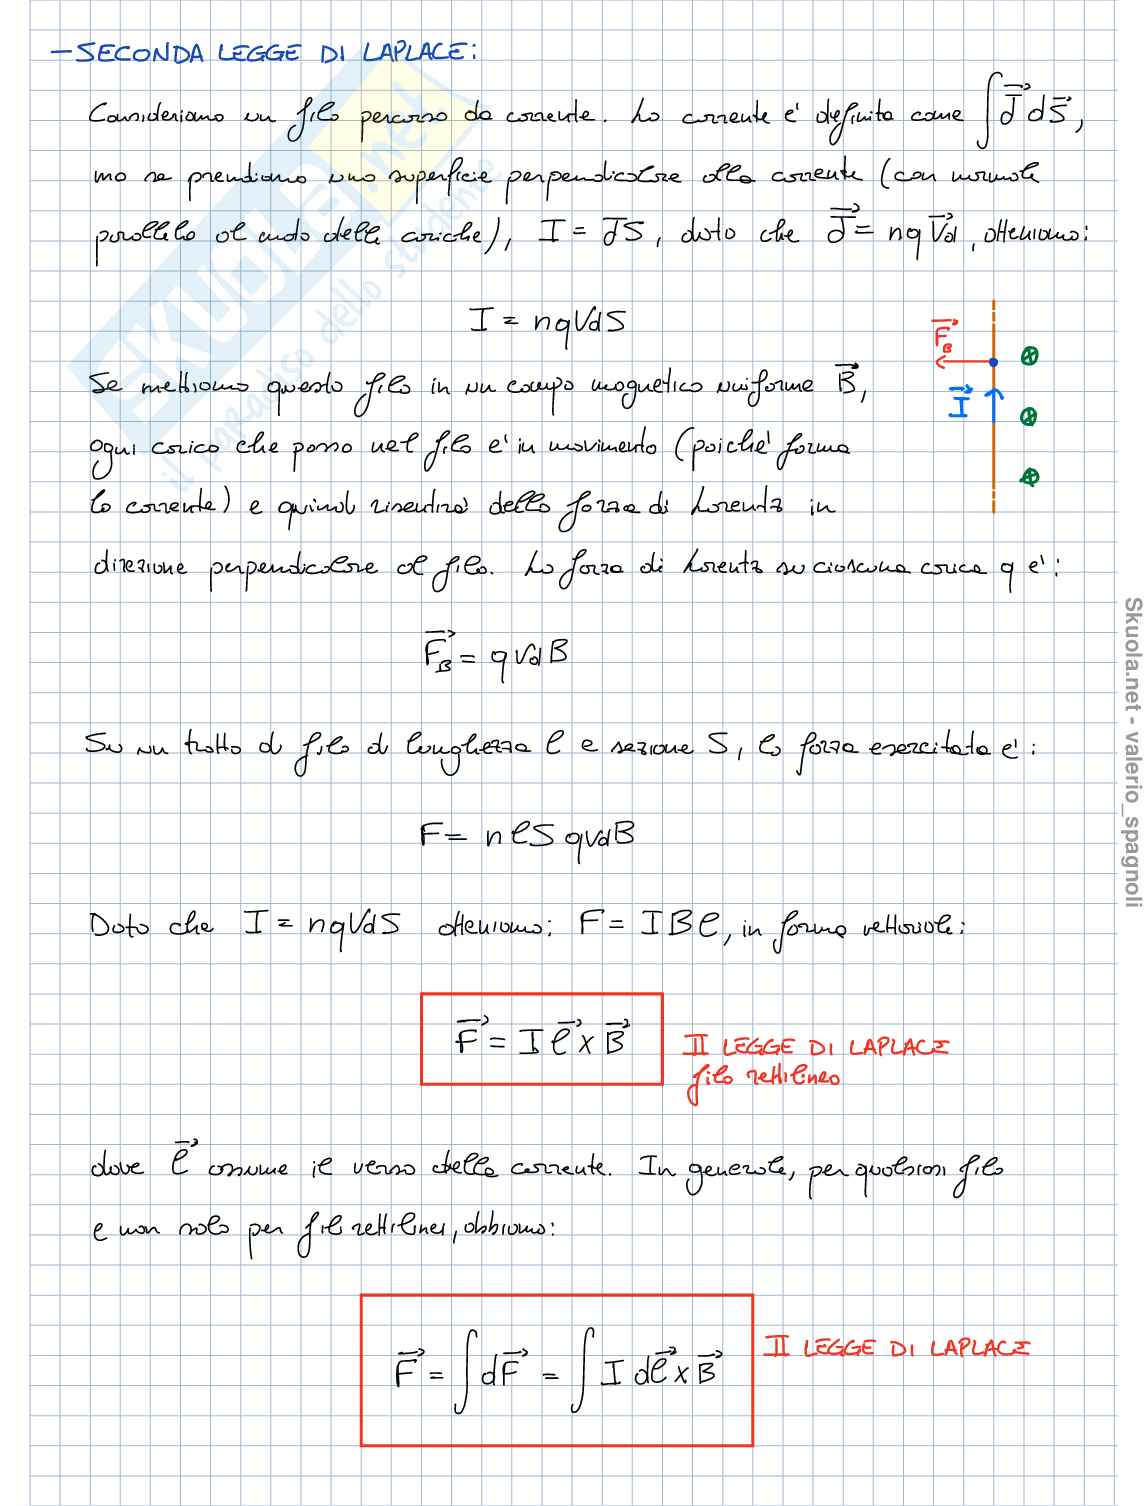 - SECONDA LEGGE DI LAPLACE:
Consideriamo un filo percorso da corrente. La corrente e' definita come ∫ J⃗ dS⃗,
ma se prendiamo una superficie perpendicolare alla corrente (con normale
parallela al moto delle cariche), I = JS, dato che J⃗ = nqV⃗d, otteniamo:
I = nqVdS
F⃗B
I⃗
Se mettiamo questo filo in un campo magnetico uniforme B⃗,
ogni carica che passa nel filo e' in movimento (poiche' forma
la corrente) e quindi risentira' della forza di Lorentz in
direzione perpendicolare al filo. La forza di Lorentz su ciascuna carica q e':
F⃗B = qVdB
Su un tratto di filo di lunghezza l e sezione S, la forza esercitata e':
F = nlS qvdB
Dato che I = nqVdS otteniamo: F = IBl, in forma vettoriale:
F⃗ = I l⃗ x B⃗
II LEGGE DI LAPLACE
filo rettilineo
dove l⃗ assume il verso della corrente. In generale, per qualsiasi filo
e non solo per fili rettilinei, abbiamo:
F⃗ = ∫ dF⃗ = ∫ I dl⃗ x B⃗
II LEGGE DI LAPLACE
SKUOLA.net
il paradiso dello studente
Skuola.net - valerio_spagnoli